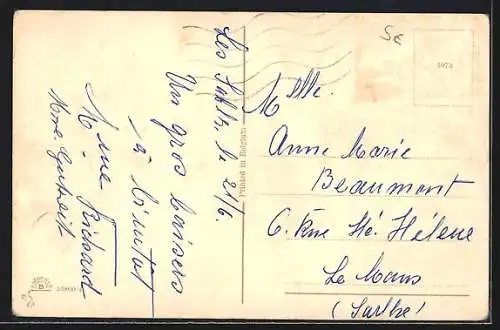 Les Sables, le 21/6.
Un gros baisers
à bientot
Mme Richard
Mme
Printed in Belgium
5€
5073
Mlle.
Anne Marie
Beaumont
6. Rue Ste. Hélène
Le Mans
(Sarthe)